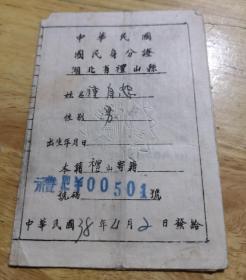 中華民國
國民身分證
湖北省禮山縣
姓名 種自恕
性別 男
出生年月日
本籍 禮山寄籍
號碼 禮更¥00501號
中華民國38年4月2日發給